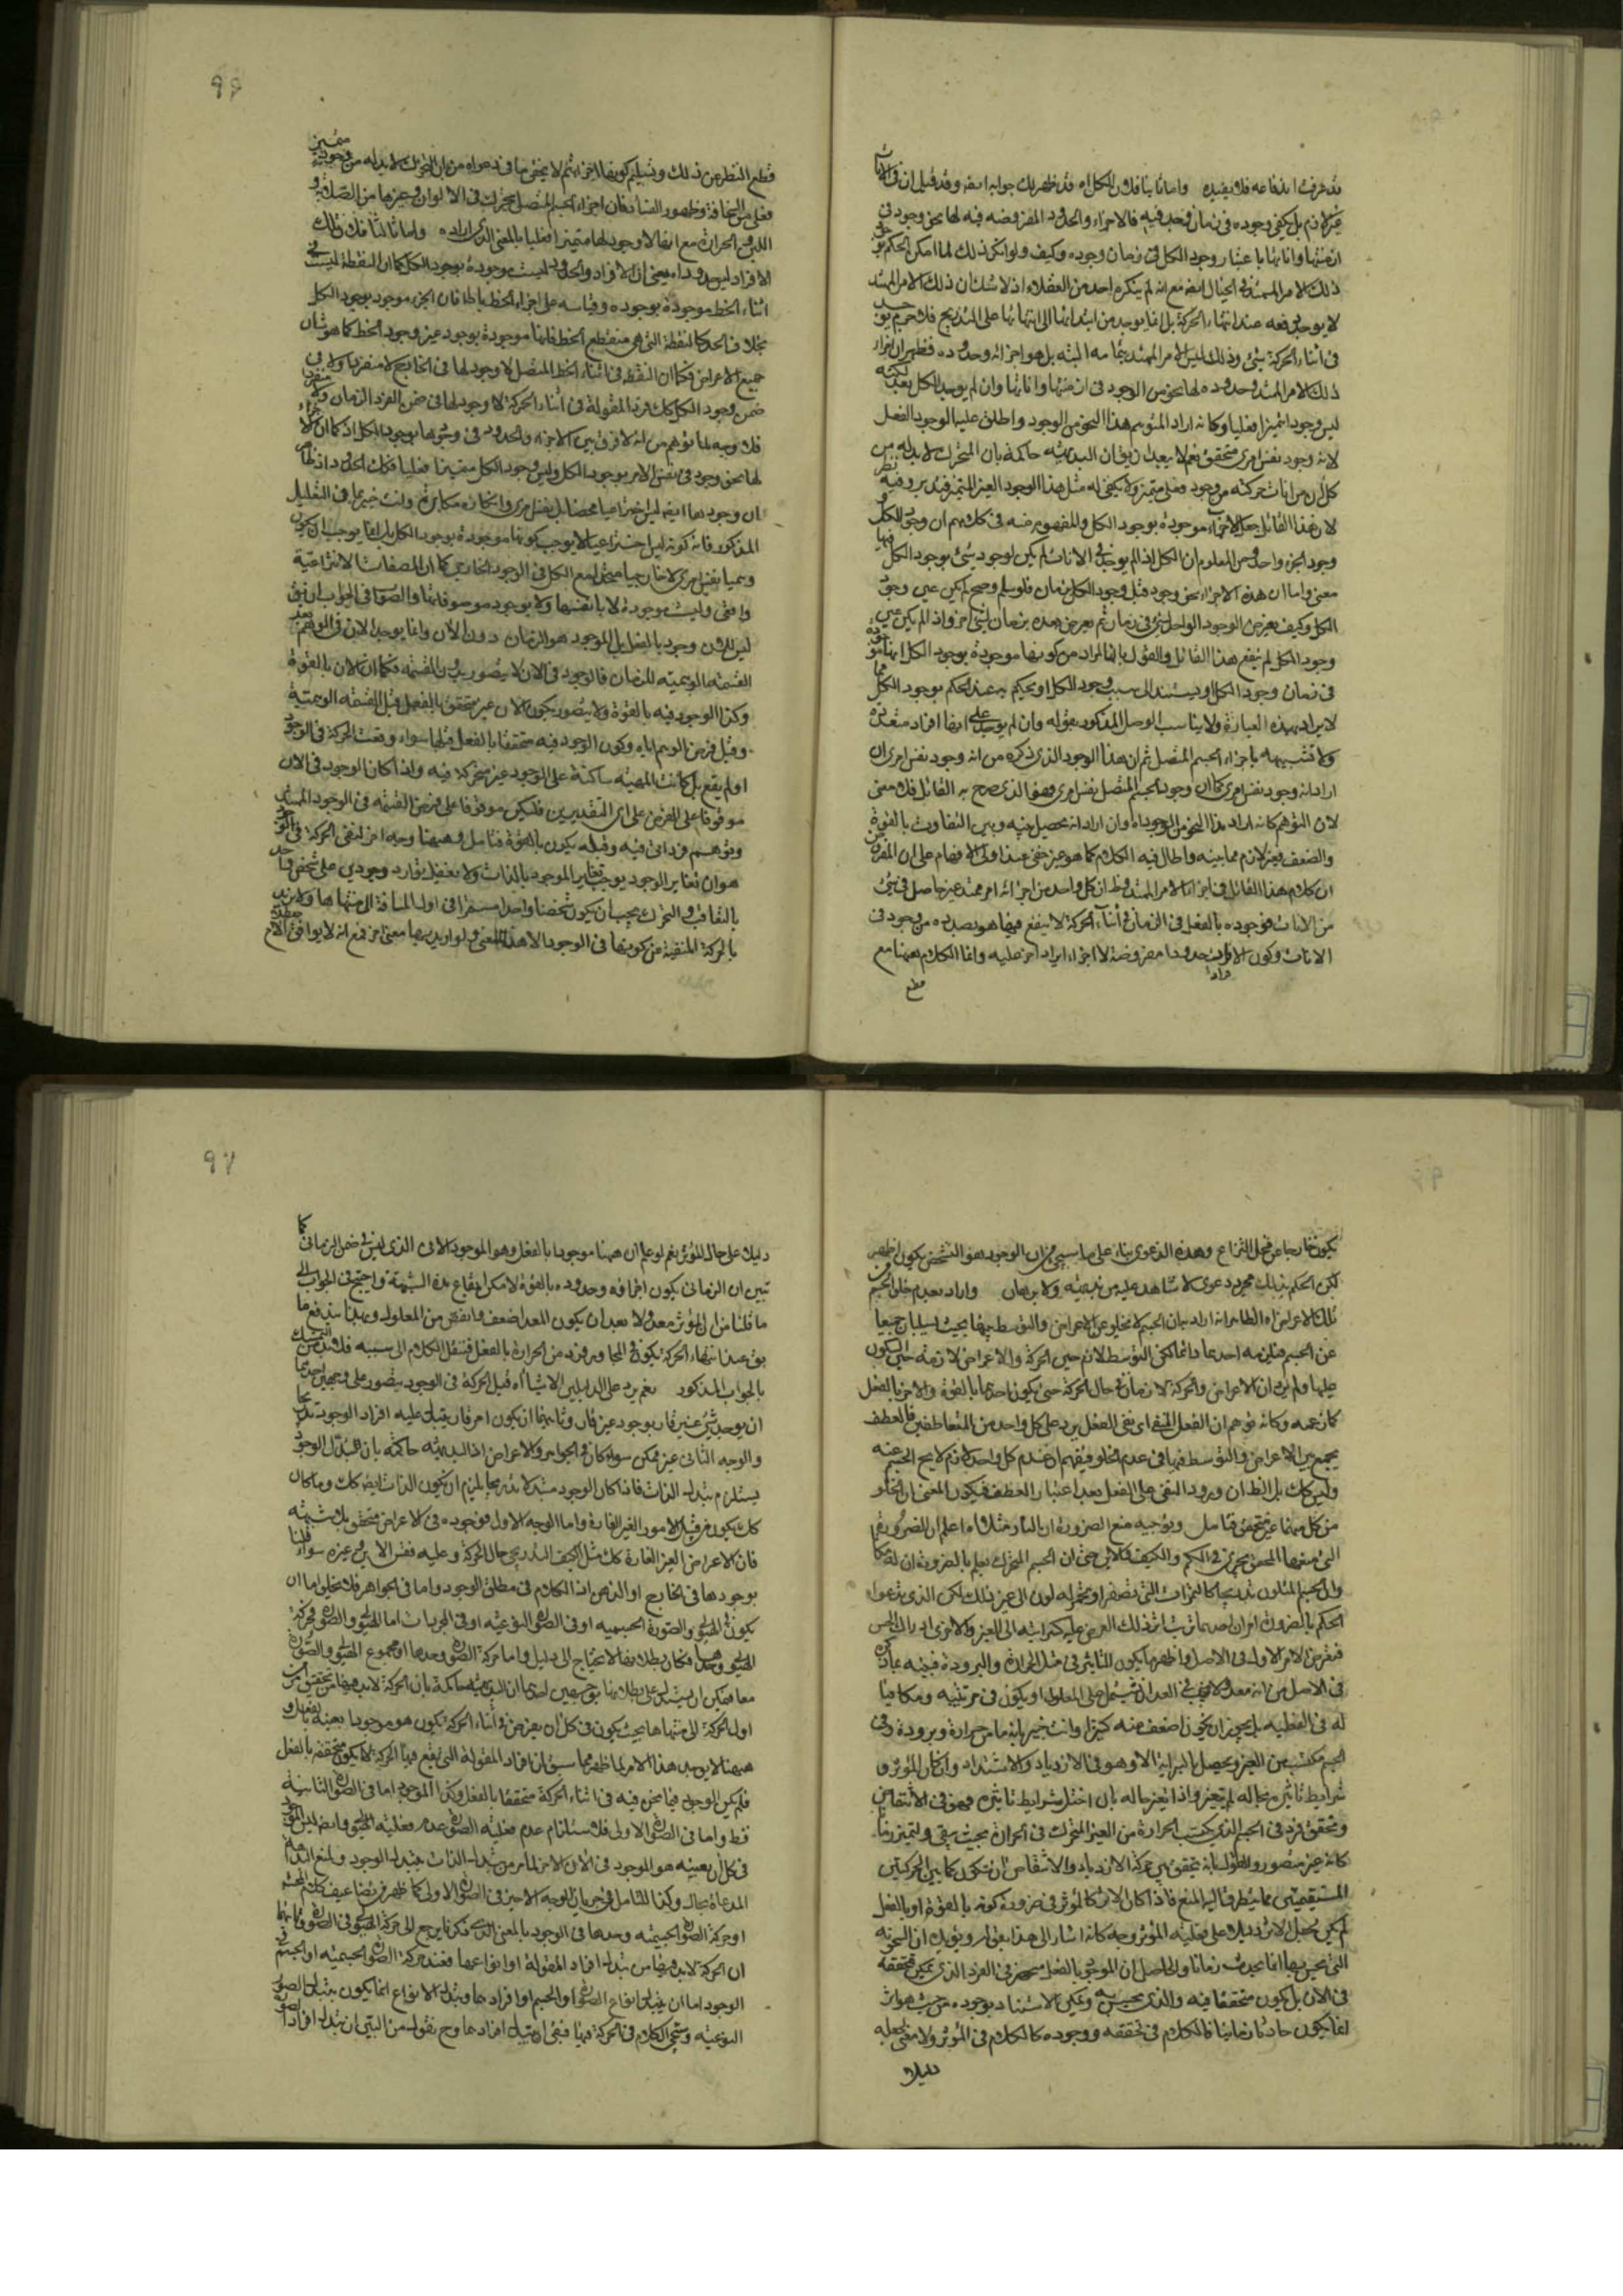 قد عرفت اندفاعه فلا يفيده واما ثانيا فلان الكل اه قد ظهر لك جوابه ايضا وقد قيل ان في الآنات
غير لازم بل يكفي وجوده في زمان فرد فيه فالاجزاء والحدود المفروضة فيه لها نحو وجود في
ازمنتها واناتها باعتبار وجود الكل في زمان وجوده وكيف ولو لم يكن ذلك لما امكن الحكم
ذلك الامر الممتد في الخيال ايضا مع انه لم ينكره احد من العقلاء اذ لا شك ان ذلك الامر الممتد
لا يوجد دفعة عند انتهاء الحركة بل انما يوجد من ابتدائها الى انتهائها على التدريج فلا
في اثناء الحركة شيء وذلك ليس الامر الممتد بتمامه البتة بل هو اجزائه وحدوده فظهر ان افراد
ذلك الامر الممتد وحدوده لها نحو من الوجود في ازمنتها واناتها وان لم يوجد الكل بعد لكنه
ليس وجودا متميزا فعليا وكانه اراد المتوهم هذا النحو من الوجود واطلق عليه الوجود بالفعل
لانه وجود نفس امري متحقق نعم لا يبعد ان يقال ان البديهة حاكمة بان المتحرك لا بد له من
كل ان من انات حركته من وجود فعلي متميز ولا يكفي له مثل هذا الوجود الغير المتميز فتدبر وفيه نظر
لان هذا القائل جعل الاجزاء موجودة بوجود الكل والمفهوم منه في كلامهم ان وجود الكل و
وجود الجزء واحد ومن المعلوم ان الكل اذا لم يوجد في الانات لم يكن لوجود شيء بوجود الكل فيها
معنى واما ان هذه الاجزاء نحو وجود قبل وجود الكل بزمان فلو سلم وصح لم يكن عين وجود
الكل وكيف يعرض الوجود الواحد لشيء في زمان ثم يعرض بعده بزمان لشيء اخر واذا لم يكن عين
وجود الكل لم ينفع هذا القائل والقول بان المراد من كونها موجودة بوجود الكل انها موجودة
في زمان وجود الكل او يستند الى سبب وجود الكل او يحكم به عند الحكم بوجود الكل مما
لا يراد بهذه العبارة ولا يناسب الوصل المذكور بقوله وان لم يوجد على انها افراد متعددة
ولا تشبيهه باجزاء الجسم المتصل ثم ان هذا الوجود الذي ذكره من انه وجود نفس امري ان
اراد انه وجود نفس امري كما ان وجود الجسم المتصل نفس امري وهو الذي صرح به القائل فلا معنى
لان المتوهم كانه اراد هذا النحو من الوجود اه وان اراد انه محصل بينه وبين التفاوت بالقوة
والضعف فغير لازم مما بينه واطال فيه الكلام كما هو غير خفي عند اولي الافهام على ان المفروض
ان كلام هذا القائل في اجزاء الامر الممتد وظ ان كل واحد من اجزائه امر ممتد غير حاصل في شيء
من الانات فوجوده بالفعل في الزمان في اثناء الحركة لا ينفع فيما هو بصدده من وجود في
الانات وكون الافراد حدودا مفروضة لا اجزاء ايراد اخر عليه وانما الكلام ههنا مع
قطع
٩٦
قطع النظر عن ذلك وتسليم كونها اجزاء ثم لا يخفى ما في دعواه من ان المتحرك لا بد له من وجود متميز
فعلي من السخافة وظهور الفساد فان اجزاء الجسم المتصل يتحرك في الالوان وغيرها من الصلابة و
اللين والحرارة مع انها لا وجود لها متميزا فعليا بالمعنى الذي اراده واما ثالثا فلان تلك
الافراد ليس حدودا يعني ان الافراد والحدود ليست موجودة بوجود الكل كما ان النقطة ليست في
اثناء الخط موجودة بوجوده وقياسه على اجزاء الخط باطل فان الجزء موجود بوجود الكل
بخلاف الحد كالنقطة التي هي منقطع الخط فانها موجودة بوجود غير وجود الخط كما هو شان
جميع الاعراض فكما ان النقطة في اثناء الخط المتصل لا وجود لها في الخارج لا منفردا ولا في
ضمن وجود الكل كك فرد المقولة في اثناء الحركة لا وجود لها في ضمن الفرد الزماني ولا منفردا
فلا وجه لما توهم من انه لا فرق بين الاجزاء والحدود في وجودها بوجود الكل اذ كما ان الاجزاء
لها نحو وجود في نفس الامر بوجود الكل وليس وجود الكل متميزا فعليا فكذلك الحدود اذ ظاهر
ان وجودها ايضا ليس اختراعيا محضا بل نفس امري وانكاره مكابرة وانت خبير بما في التعليل
المذكور فانه كونه ليس اختراعيا لا يوجب كونها موجودة بوجود الكل بل انما يوجب ان يكون
وهميا نفس امري لا خارجيا متحدا مع الكل في الوجود الخارجي كما ان الصفات الانتزاعية
واقعي وليست موجودة لا بانفسها ولا بوجود موصوفاتها والصواب في الجواب ان يق
ليس للان وجود بالفعل بل الموجود هو الزمان دون الان وانما يوجد الان في الوهم بعد
القسمة الوهمية للزمان فالوجود في الان لا يتصور بدون القسمة فكما ان الان بالقوة
وكذا الوجود فيه بالقوة ولا يتصور كون الان غير متحقق بالفعل قبل القسمة الوهمية
وقبل فرض الوهم اياه وكون الوجود فيه متحققا بالفعل قبلها سواء وقعت الحركة في الوجود
او لم يقع بل كانت المهية ساكنة على الوجود غير متحركة فيه واذا كان الوجود في الان
موقوفا على الفرض على اي التقديرين فليكن موقوفا على فرض القسمة في الوجود الممتد
وتوهم فرد اني فيه وقبله يكون بالقوة فتامل وههنا وجه اخر لنفي الحركة في الوجود
هو ان تغاير الوجود يوجب تغاير الموجود بالذات ولا يعقل توارد وجودين على شخص واحد
بالتعاقب والمتحرك يجب ان يكون شخصا واحدا مستمرا في اول المسافة الى منتهاها ولا نريد
بالحركة المنفية عن كونها في الوجود الا هذا المعنى ولو اريد بها معنى اخر فمع انه لا يوافق
يكون خارجا عن محل النزاع وهذه الدعوى بناء على ما سيجيء من ان الوجود هو التشخص يكون اظهر
لكن الحكم بذلك مجرد دعوى لا شاهد عليه من بديهة ولا برهان واراد بعدم خلو الجسم
تلك الاعراض اه الظاهر انه اراد بيان الجسم لا يخلو عن الاعراض والتوسط بينها بحيث يسلبان جميعا
عن الجسم فيلزمه احدهما دائما لكن التوسط لازم حين الحركة والاعراض لازمة حين السكون
عليها ولم يرد ان الاعراض والحركة لازمان في حال الحركة حتى يكون احدهما بالقوة والاخر بالفعل
كما زعمه وكانه توهم ان الفعل المنفي اي نفي الفعل يرد على كل واحد من المتعاطفين فالعطف
يجمع بين الاعراض والتوسط فيها في عدم الخلو فيفهم ان عدم كل واحد لازم لا يخلو الجسم عنه
وليس كك بل الظ ان ورود النفي على الفعل بعد اعتبار العطف فيكون المعنى ان الخلو
من كل منهما غير متحقق فتامل وتوجيه منع الضرورة ان النار مثلا اه اعلم ان الضرورة
التي منعها المحقق تجري في الكم والكيف والاين حتى ان الجسم المتحرك يعلم بالضرورة ان له مكانا
وان الجسم المتلون تدريجا كالثمرات التي تصفر او تحمر له لون الى غير ذلك لكن الذي يدعوا
الحكم بالضرورة امران احدهما تاثر ذلك العرض عليه كسرايته الى الغير والاخرى ادراك الحس
فتعرض الامر الاول في الاصل واظهرها يكون التاثير في مثل الحرارة والبرودة فبينه بما ذكره
في الاصل من انه معد ولا يجب في المعد ان يشتمل على المعلول او يكون في مرتبته ومكافيا
له في الفعلية بل يجوز ان يكون اضعف منه كثيرا وانت خبير بانه ما من حرارة وبرودة في
الجسم مكتسب من الغير ويحصل البراية الا وهو في الازدياد والاشتداد وان كان المؤثر و
شرايط تاثيره بحاله لم يتغير واذا تغير حاله بان اختل شرايط تاثيره فهو في الانتقاص
وتحقق فرد في الجسم الذي يكتسب الحرارة من الغير المتحرك في الحرارة بحيث يبقى ولم يتغير زمانا
كانه غير متصور والقول بانه يتحقق بين حركة الازدياد والانتقاص ان سكون كما بين الحركتين
المستقيمتين مما يتطرق اليه المنع فاذا كان الاثر كالمؤثر في ضرورة كونه بالقوة او بالفعل
لم يكن يجعل الاثر دليلا على فعلية المؤثر وجه كانه اشار الى هذا بقوله ويؤيده ان السخونة
التي يحس بها انما يحدث زمانا والحاصل ان الموجود بالفعل منحصر في الفرد الذي يمكن تحققه
في الان بل يكون متحققا فيه والذي يحس به ويمكن الاستناد بوجوده من حيث هو اثر
انما يكون حادثا زمانيا فالكلام في تحققه ووجوده كالكلام في المؤثر ولا معنى لجعله
دليلا
٩٧
دليلا على حال المؤثر نعم لو علم ان ههنا موجودا بالفعل وهو الموجود الاني الذي ليس في ضمن الزماني كما
تبين ان الزماني يكون اجزائه وحدوده بالقوة لا مكن ايقاع هذه الشبهة واحتج في الجواب الى
ما قلنا من ان المؤثر معد ولا يبعد ان يكون المعد اضعف وانقص من المعلول وبهذا يندفع ما
بق عند انتهاء الحركة يكون في المجاور فرد من الحرارة بالفعل فننقل الكلام الى سببه فلا بد من التمسك
بالجواب المذكور نعم يرد على الدليلين الاشياء اه قيل الحركة في الوجود يتصور على وجهين احدهما
ان يوجد شيء غير قار بوجود غير قار وثانيهما ان يكون امر قار يتبدل عليه افراد الوجود تدريجا
والوجه الثاني غير ممكن سواء كان في الجواهر والاعراض اذ البديهة حاكمة بان تبدل الوجود
يستلزم تبدل الذات فاذا كان الوجود متبدلا تدريجا يلزم ان يكون الذات ايضا كك وما كان
كك يكون من قبيل الامور الغير القارة واما الوجه الاول فوجوده في الاعراض متحقق بلا شبهة
فان الاعراض الغير القارة كك مثل الكيف التدريجي حال الحركة وعليه نفس الاين وغيره سواء قلنا
بوجودها في الخارج او الذهن اذ الكلام في مطلق الوجود واما في الجواهر فلا يخلو اما ان
يكون في الهيولى والصورة الجسمية او في الصورة النوعية او في المجردات اما الهيولى والصورة فحركة
الهيولى وحدها فكان بطلانها لا يحتاج الى دليل واما حركة الصورة وحدها او مجموع الهيولى والصورة
معا فيمكن ان يستدل على بطلانها بوجهين احدهما ان البديهة حاكمة بان الحركة لا بد فيها من تحقق امر من
اول الحركة الى منتهاها بحيث يكون في كل ان يعرض في اثناء الحركة يكون هو موجودا بعينه بالفعل و
ههنا لا يوجد هذا الامر لما ظهر مما سبق ان افراد المقولة التي يقع فيها الحركة لا يكون متحققة بالفعل
فلم يكن الوجود فيما نحن فيه في اثناء الحركة متحققا بالفعل وكذا الموجود اما في الصورة الثانية
فظ واما في الصورة الاولى فلاستلزام عدم فعلية الصورة عدم فعلية الهيولى وايضا ليس الموجود
في كل ان بعينه هو الموجود في الان الاخر لما مر من تبدل الذات بتبدل الوجود ولمنع البداهة
المدعاة مجال وكذا للتامل في جريان الوجه الاخير في الصورة الاولى كما ظهر من تضاعيف كلام المحشي
او حركة الصورة الجسمية وحدها في الوجود بالمعنى الذي ذكرنا يرجع الى حركة الهيولى في الصورة وثانيهما
ان الحركة لا بد فيها من تبدل افراد المقولة او انواعها فعند حركة الصورة الجسمية او الجسم في
الوجود اما ان يتبدل انواع الصورة او الجسم او افرادهما وتبدل الانواع انما يكون بتبدل الصور
النوعية وسيجيء الكلام في الحركة فيها فبقي ان يتبدل افرادهما وح نقول من البين ان تبدل افراد الصور